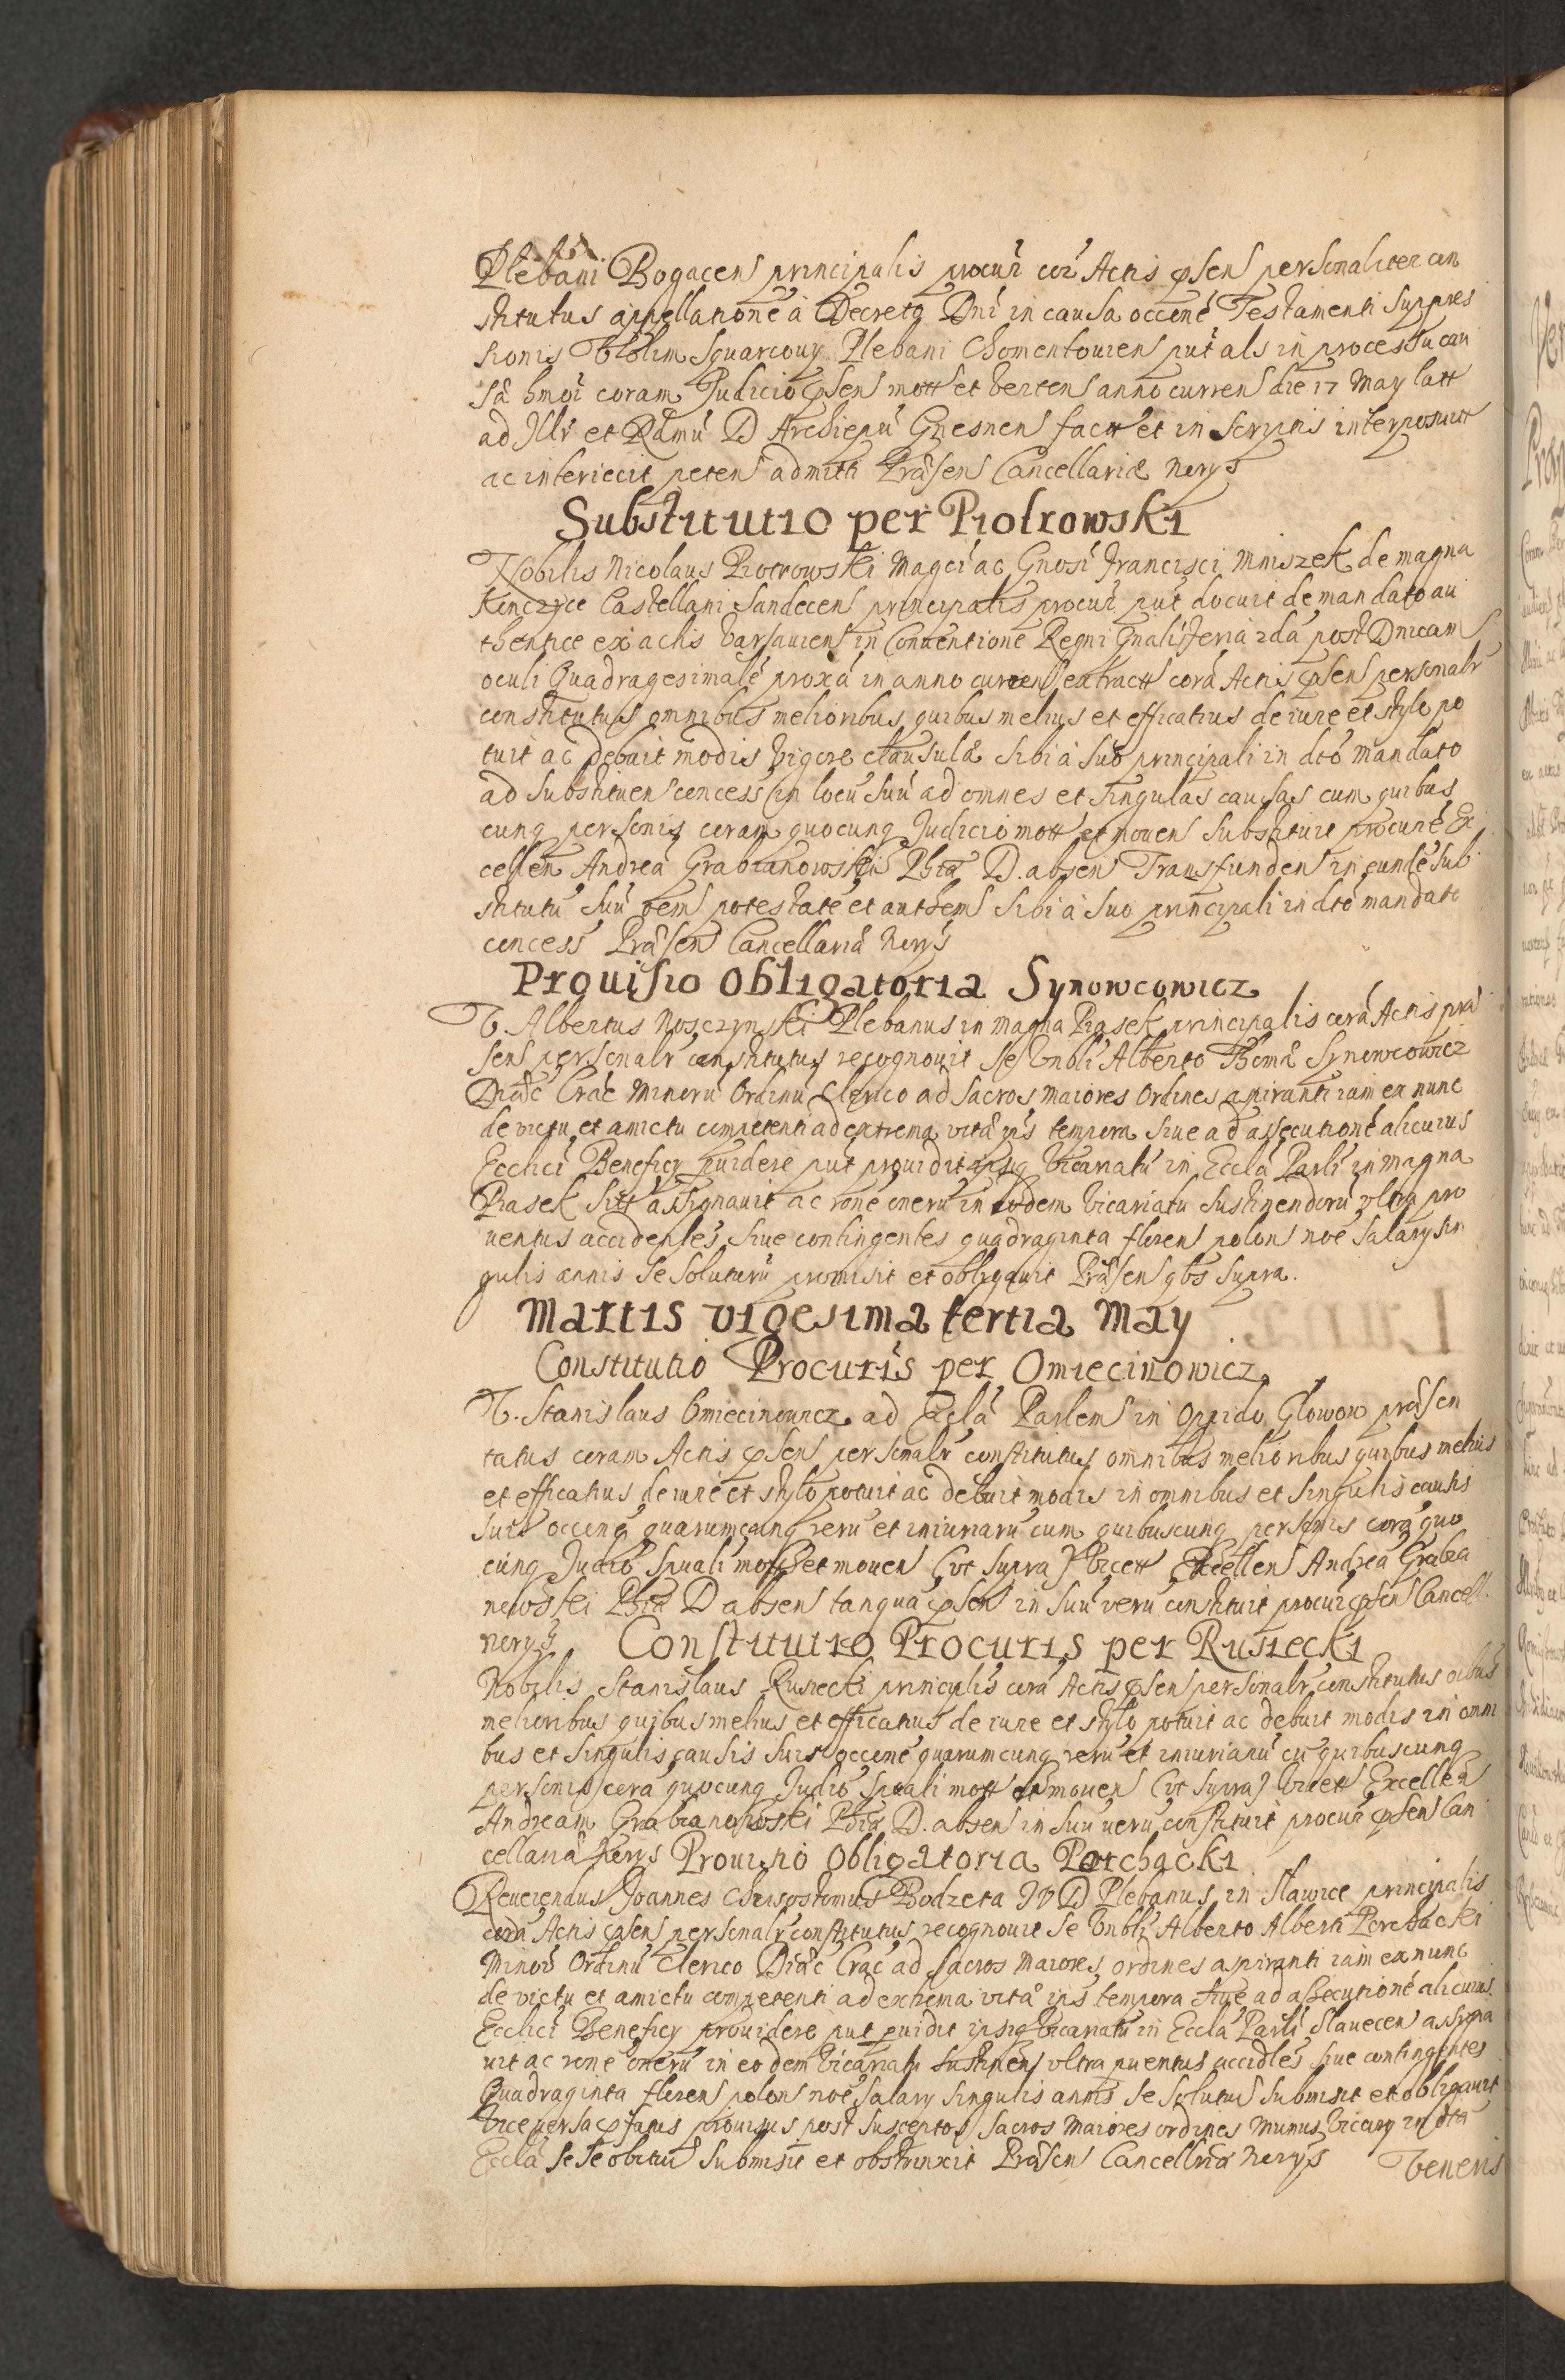 Plebani Bogacen principalis procur cor Actis psen personaliter con
stitutus appellatione a Decreto Dni in causa occne Testamenti suppres
sionis Vblolim Squarcouy Plebani Chomentouien put als in processu cau
sa hmoi coram Judicio psen mott et verten anno curren die 17 May latt
ad Illr et Rdmu D Archiepu Gnesnen fact et in scriptis interposuit
ac interiecit peten admitti Præsen Cancellariæ Norys
Substitutio per Piotrowski
Nobilis Nicolaus Piotrowski Magci ac Gnosi Francisci Mniszek de magna
Konczyce Castellani Sandecen principalis procur put docuit de mandato au
thentice ex actis Varsauien in Conuentione Regni Gnali feria 2da post Dnicam
oculi Quadragesimale proxa in anno curren extractt corā Actis psen personalr
constitutus omnibus melioribus quibus melius et efficatius de iure et stylo po
tuit ac debuit modis vigore clausulæ sibi a suo principali in dto mandato
ad substituen concess in locu suu ad omnes et singulas causas cum quibus
cunq personis coram quocunq Judicio mott et mouen substituit procure Ex
cellen Andrea Grabianowski Phiæ D. absen Transfunden in eunde sub
stitutu suu oem potestate et authem sibi a suo principali in dto mandato
concess Præsen Cancellaria Norys
Prouisio obligatoria Synowcowicz
V. Albertus Nosczynski Plebanus in magna Piasek principalis corā Actis præ
sen personalr constitutus recognouit se Vnbli Alberto Thomæ Synowcowicz
Diæc Crac Minoru Ordinu Clerico ad sacros maiores Ordines aspiranti iam ex nunc
de victu et amictu competenti ad extrema vitæ ips tempora siue ad assecutione alicuius
Ecclici Beneficy puidere put prouidit ipsiq Vicariatu in Eccla Parli in magna
Piasek sitt assignauit ac rone oneru in eodem Vicariatu sustinendoru vltra pro
uentus accidentes siue contingentes quadraginta floren polon noe salary sin
gulis annis se soluturu promisit et obligauit Præsen qbs supra.
Martis vigesima tertia May
Constitutio Procuris per Omiecinowicz
V. Stanislaus Omiecinowicz ad Eccla Parlem in Oppido Glowow præsen
tatus coram Actis psen personalr constitutus omnibus melioribus quibus melius
et efficatius de iure et stylo potuit ac debuit modis in omnibus et singulis causis
suis occne quarumcunq reru et iniuriaru cum quibuscunq personis cora quo
cunq Judio spuali mott et mouen (vt supra) Vicett Excellen Andrea Grabia
nowski Phiæ D absen tanqua psen in suu veru constituit procur psen Cancell.
Norys Constitutio Procuris per Rusiecki
Nobilis Stanislaus Rusiecki principlis cora Actis psen personalr constitutus oibus
melioribus quibus melius et efficatius de iure et stylo potuit ac debuit modis in omni
bus et singulis causis suis occne quarumcunq reru et iniuriaru cu quibuscunq
personis cora quocunq Judio spuali mott et mouen (vt supra) Vicett Excellen
Andream Grabianowski Phiæ D. absen in suu veru constituit procur psen Can
cellaria Norys Prouisio obligatoria Porchacki
Reuerendus Joannes Chrisostomus Bodzeta IVD Plebanus in Slawice principalis
corā Actis psen personalr constitutus recognouit se Vnbli Alberto Alberti Porchacki
Minor Ordinu Clerico Diæc Crac ad sacros maiores ordines aspiranti iam ex nunc
de victu et amictu competenti ad extrema vitæ ips tempora siue ad assecutione alicuius
Ecclici Beneficy prouidere put puidit ipsiq Vicariatu in Eccla Parli Slauecen assigna
uit ac rone oneru in eodem Vicariatu sustinen vltra puentus accidtes siue contingentes
Quadraginta floren polon noe salary singulis annis se solutur submisit et obligauit
Vice versa pfatus prouisus post susceptos sacros maiores ordines munus Vicary in dta
Eccla sese obitur submisit et obstrinxit Præsen Cancellria Norys Veneris